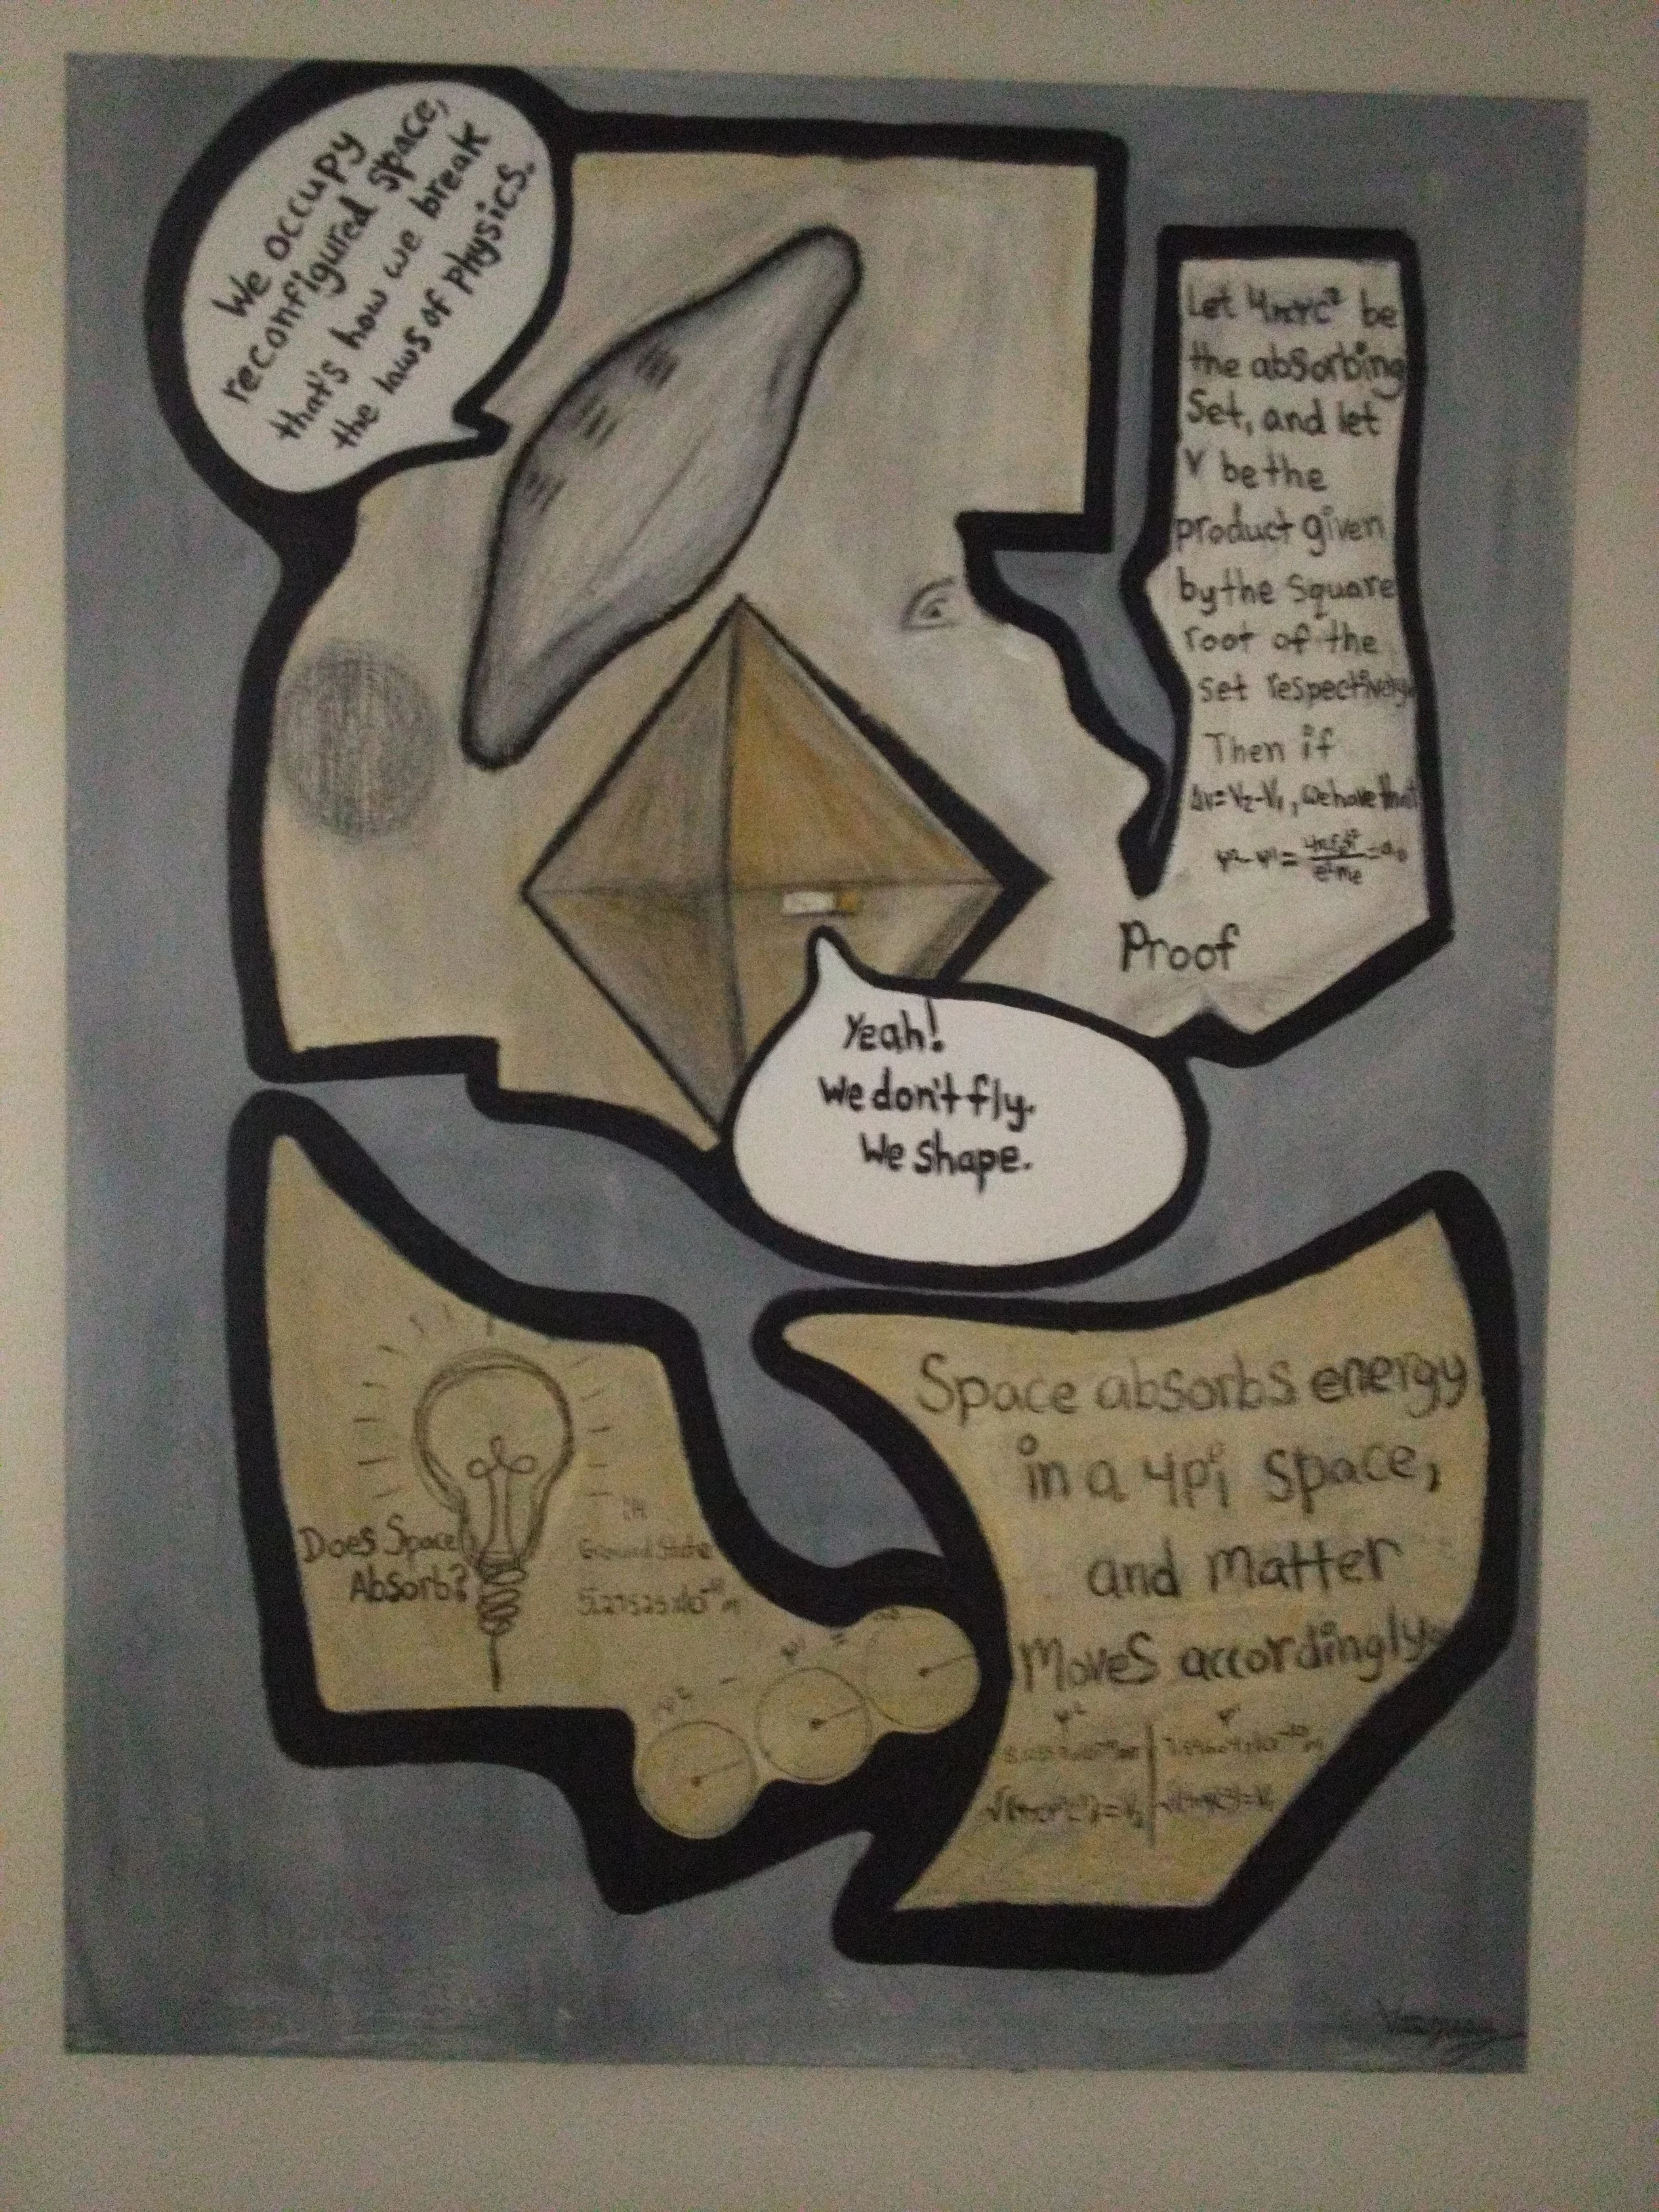 We occupy
reconfigured space,
that's how we break
the laws of Physics.
Let 4πrc² be
the absorbing
Set, and let
V be the
product given
by the square
root of the
set respectively.
Then if
Δv=V₂-V₁, we have that
Ψ²-Ψ¹= =a₀
Proof
Yeah!
We don't fly.
We shape.
Does Space
Absorb?
in
Ground State
5.27525x10⁻¹¹m
Ψ² - Ψ¹ =
Space absorbs energy
in a 4pi space,
and matter
moves accordingly.
Ψ² Ψ¹